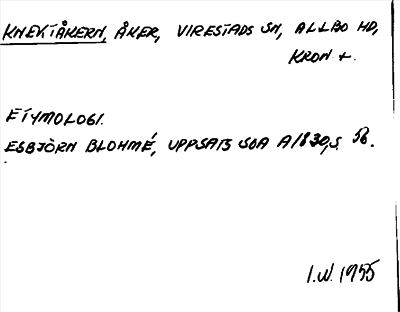 KNEKTÅKERN, ÅKER, VIRESTADS SN, ALLBO HD,
KRON +.
ETYMOLOGI.
ESBJÖRN BLOHMÉ, UPPSATS SOA A1830, S. 58.
I.W. 1955